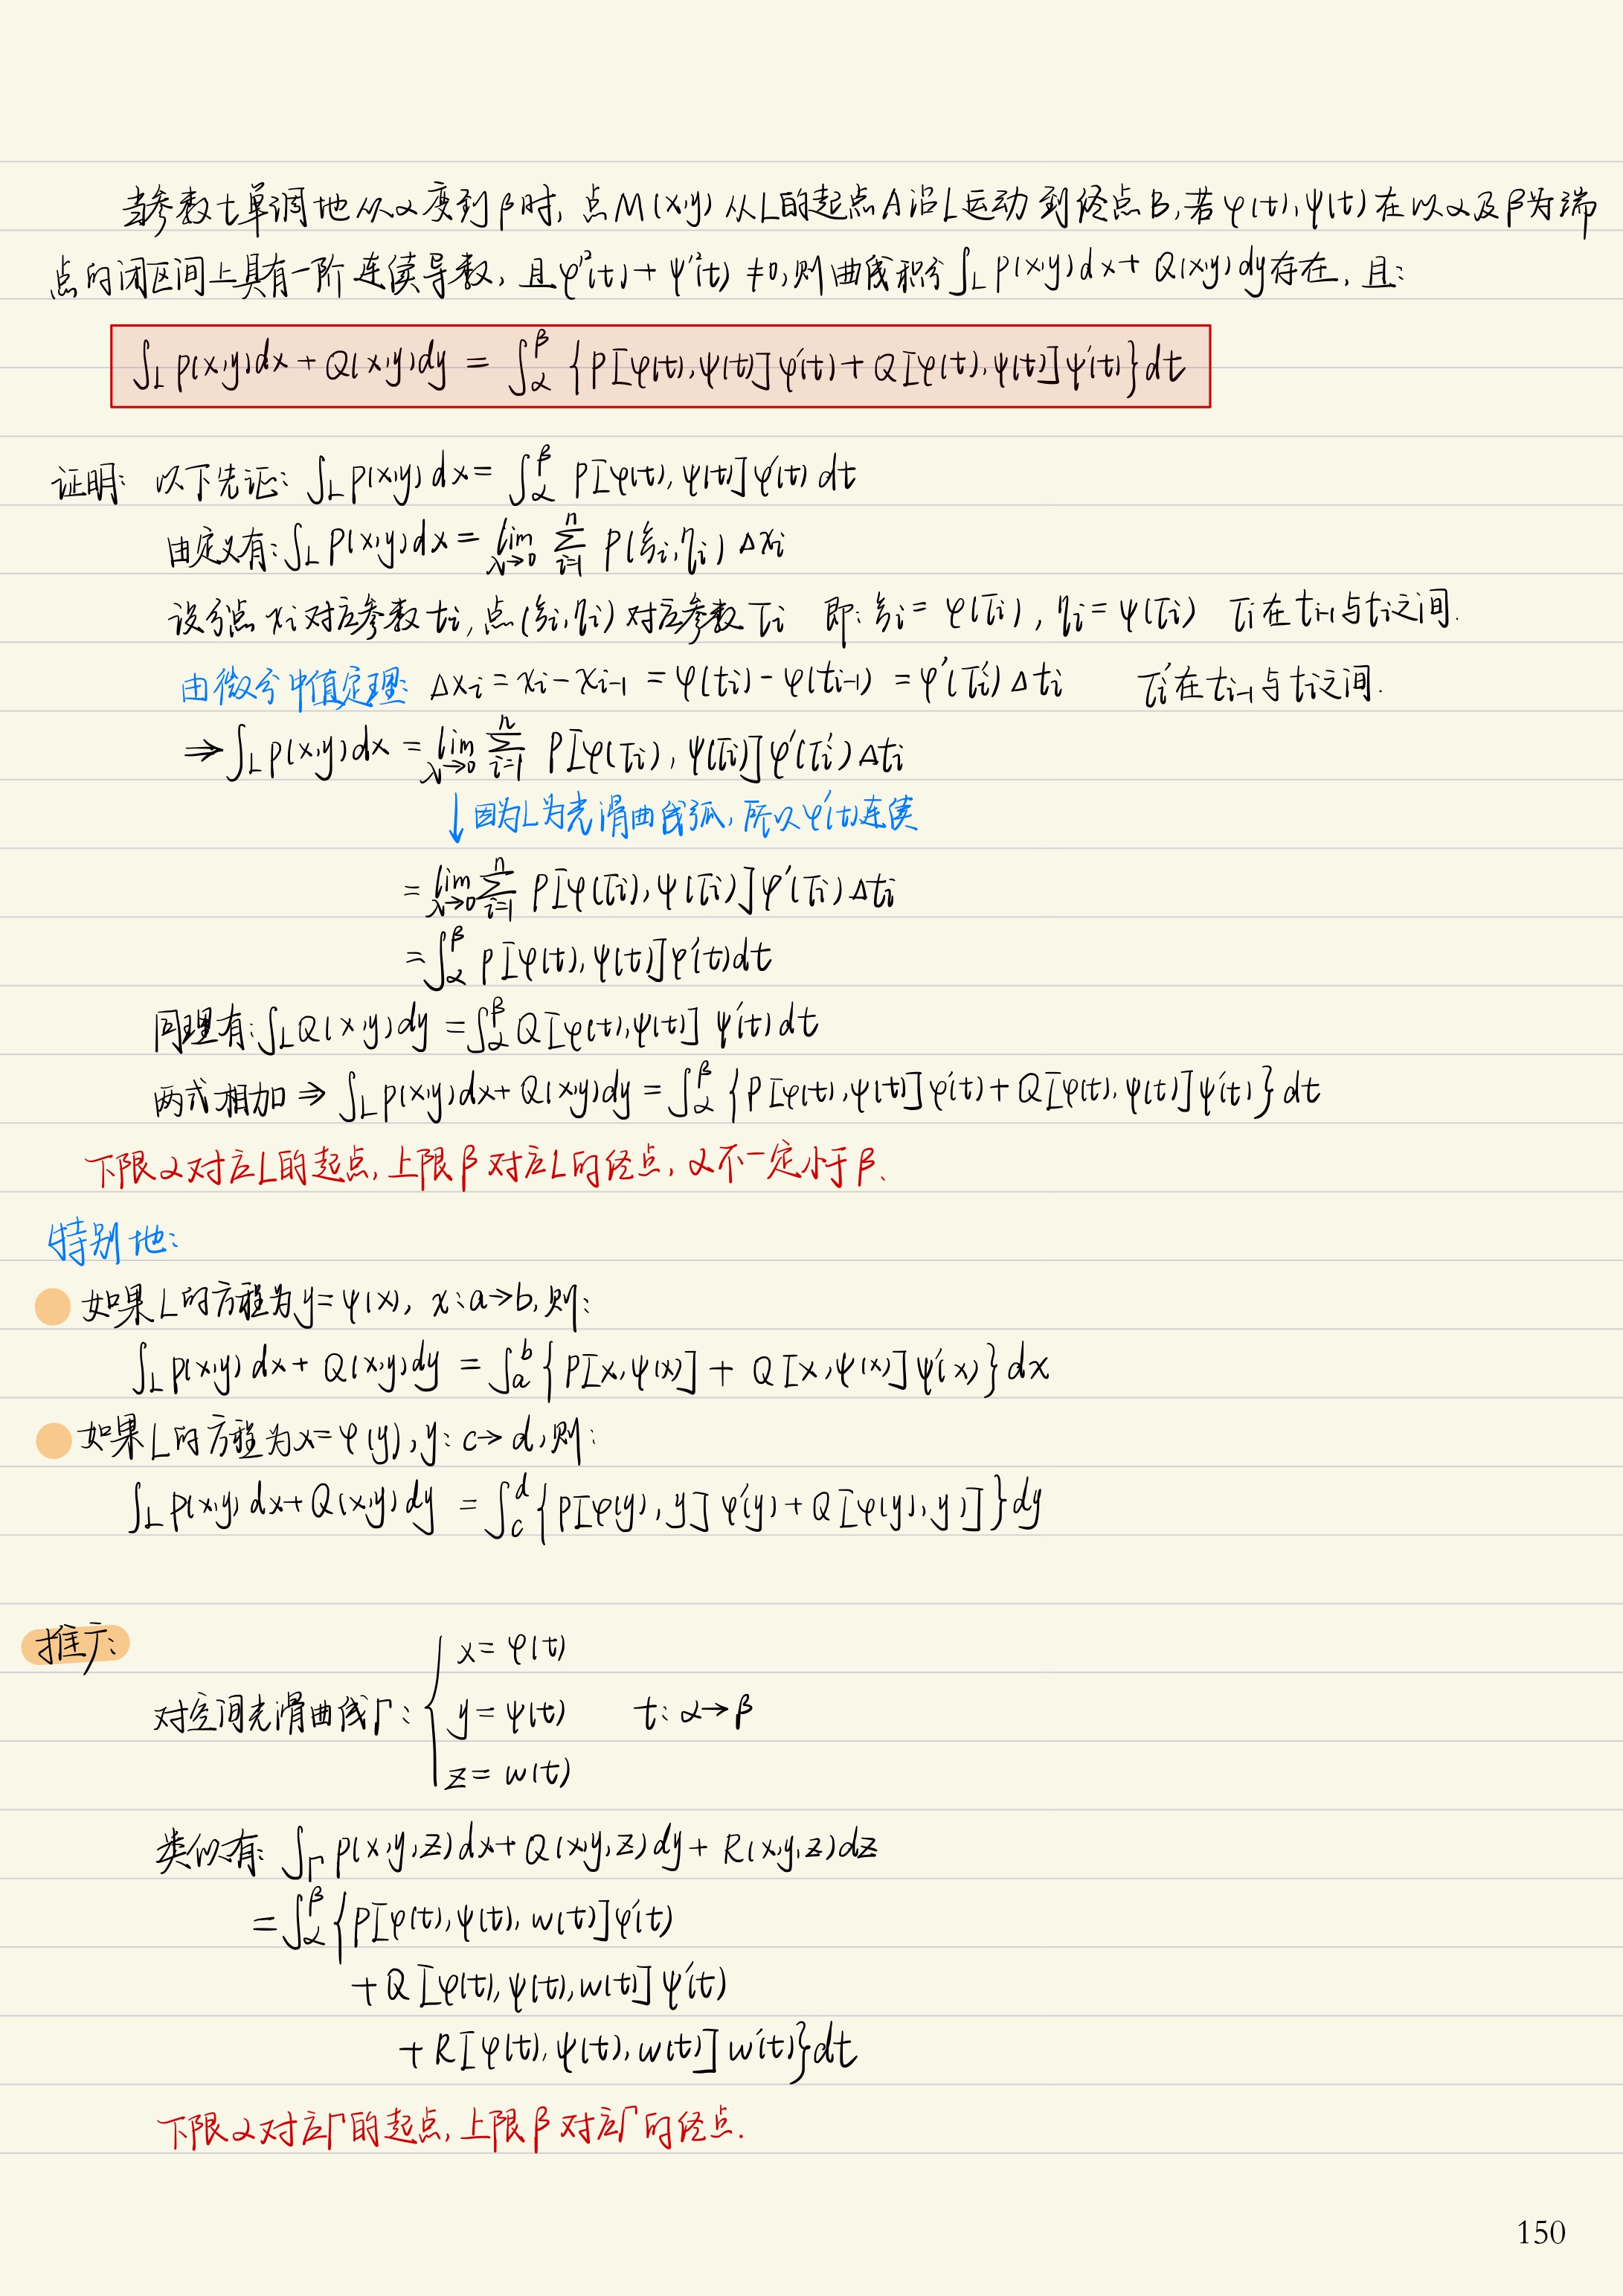 当参数t单调地从α变到β时, 点M(x,y)从L的起点A沿L运动到终点B,若φ(t),ψ(t)在以α及β为端
点的闭区间上具有一阶连续导数, 且φ'²(t)+ψ'²(t)≠0,则曲线积分∫_L P(x,y)dx+Q(x,y)dy存在, 且:
∫_L P(x,y)dx+Q(x,y)dy = ∫_α^β {P[φ(t),ψ(t)]φ'(t)+Q[φ(t),ψ(t)]ψ'(t)}dt
证明: 以下先证: ∫_L P(x,y)dx = ∫_α^β P[φ(t),ψ(t)]φ'(t)dt
由定义有: ∫_L P(x,y)dx = lim_{λ→0} Σ_{i=1}^n P(ξi,ηi)Δxi
设分点xi对应参数ti, 点(ξi,ηi)对应参数τi 即: ξi=φ(τi), ηi=ψ(τi) τi在ti-1与ti之间.
由微分中值定理: Δxi=xi-xi-1=φ(ti)-φ(ti-1)=φ'(τi')Δti τi'在ti-1与ti之间.
⇒∫_L P(x,y)dx = lim_{λ→0} Σ_{i=1}^n P[φ(τi),ψ(τi)]φ'(τi')Δti
↓因为L为光滑曲线弧, 所以φ'(t)连续
= lim_{λ→0} Σ_{i=1}^n P[φ(τi),ψ(τi)]φ'(τi)Δti
= ∫_α^β P[φ(t),ψ(t)]φ'(t)dt
同理有: ∫_L Q(x,y)dy = ∫_α^β Q[φ(t),ψ(t)]ψ'(t)dt
两式相加 ⇒ ∫_L P(x,y)dx+Q(x,y)dy = ∫_α^β {P[φ(t),ψ(t)]φ'(t)+Q[φ(t),ψ(t)]ψ'(t)}dt
下限α对应L的起点, 上限β对应L的终点, α不一定小于β.
特别地:
如果L的方程为y=ψ(x), x:a→b,则:
∫_L P(x,y)dx+Q(x,y)dy = ∫_a^b {P[x,ψ(x)]+Q[x,ψ(x)]ψ'(x)}dx
如果L的方程为x=φ(y),y:c→d,则:
∫_L P(x,y)dx+Q(x,y)dy = ∫_c^d {P[φ(y),y]φ'(y)+Q[φ(y),y)]}dy
推广:
x=φ(t)
对空间光滑曲线Γ: { y=ψ(t) t:α→β
z=w(t)
类似有: ∫_Γ P(x,y,z)dx+Q(x,y,z)dy+R(x,y,z)dz
= ∫_α^β {P[φ(t),ψ(t),w(t)]φ'(t)
+Q[φ(t),ψ(t),w(t)]ψ'(t)
+R[φ(t),ψ(t),w(t)]w'(t)}dt
下限α对应Γ的起点, 上限β对应Γ的终点.
150